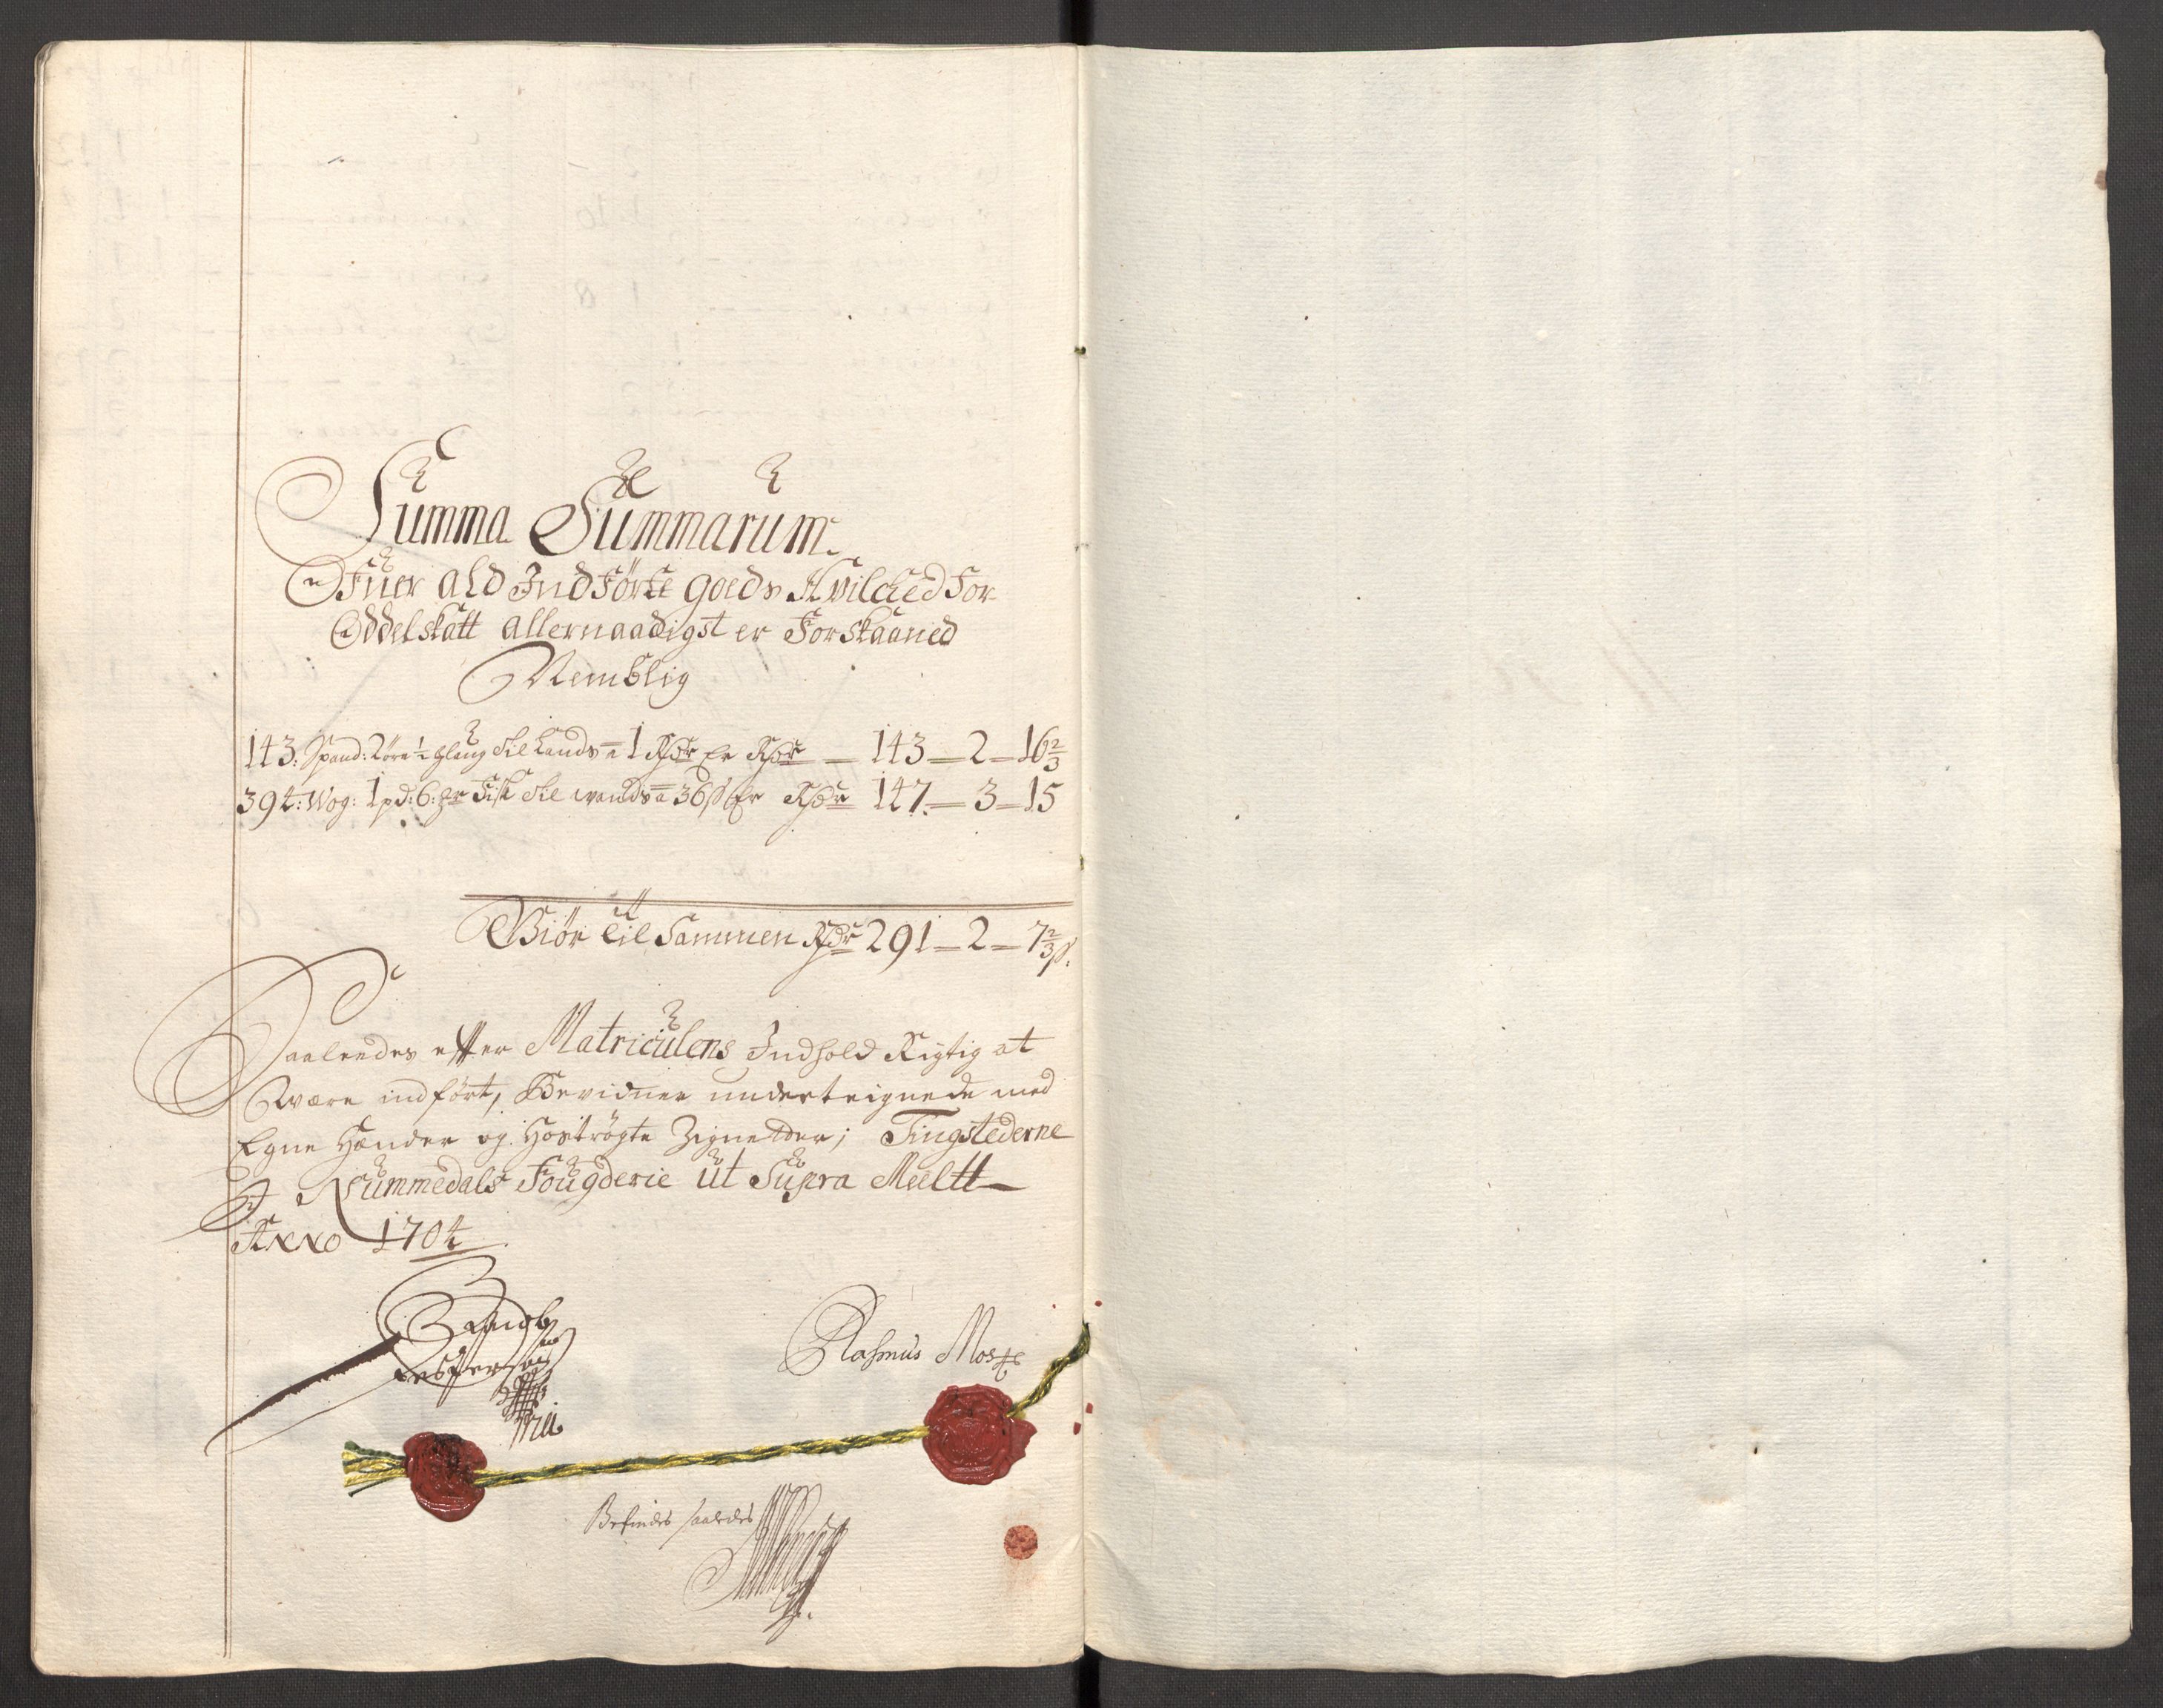 Summa Summarum
Ofuer ald Indførte goeds Hvilched For
Oddelskatt allernaadigst er Forskaaned
Nemblig
143: Spand: 2öre ½ til Lands a 1 Rdr Er Rdr — 143 — 2 — 16⅔
394: Wog: 1 pd: 6: Fisk til vands a 36 ß Er Rdr 147 — 3 — 15
Giör til Sammen Rdr 291 — 2 — 7⅔ ß.
Saaledes effter Matriculens Indhold Rigtig at
være indfört, Bevidner underteignede med
Egne Hænder og Hoströgte Zigneter; Tingstederne
I Nummedals Fougderie ut Supra Meltt
Anno 1704
Rasmus Mos
Befindes saaledes